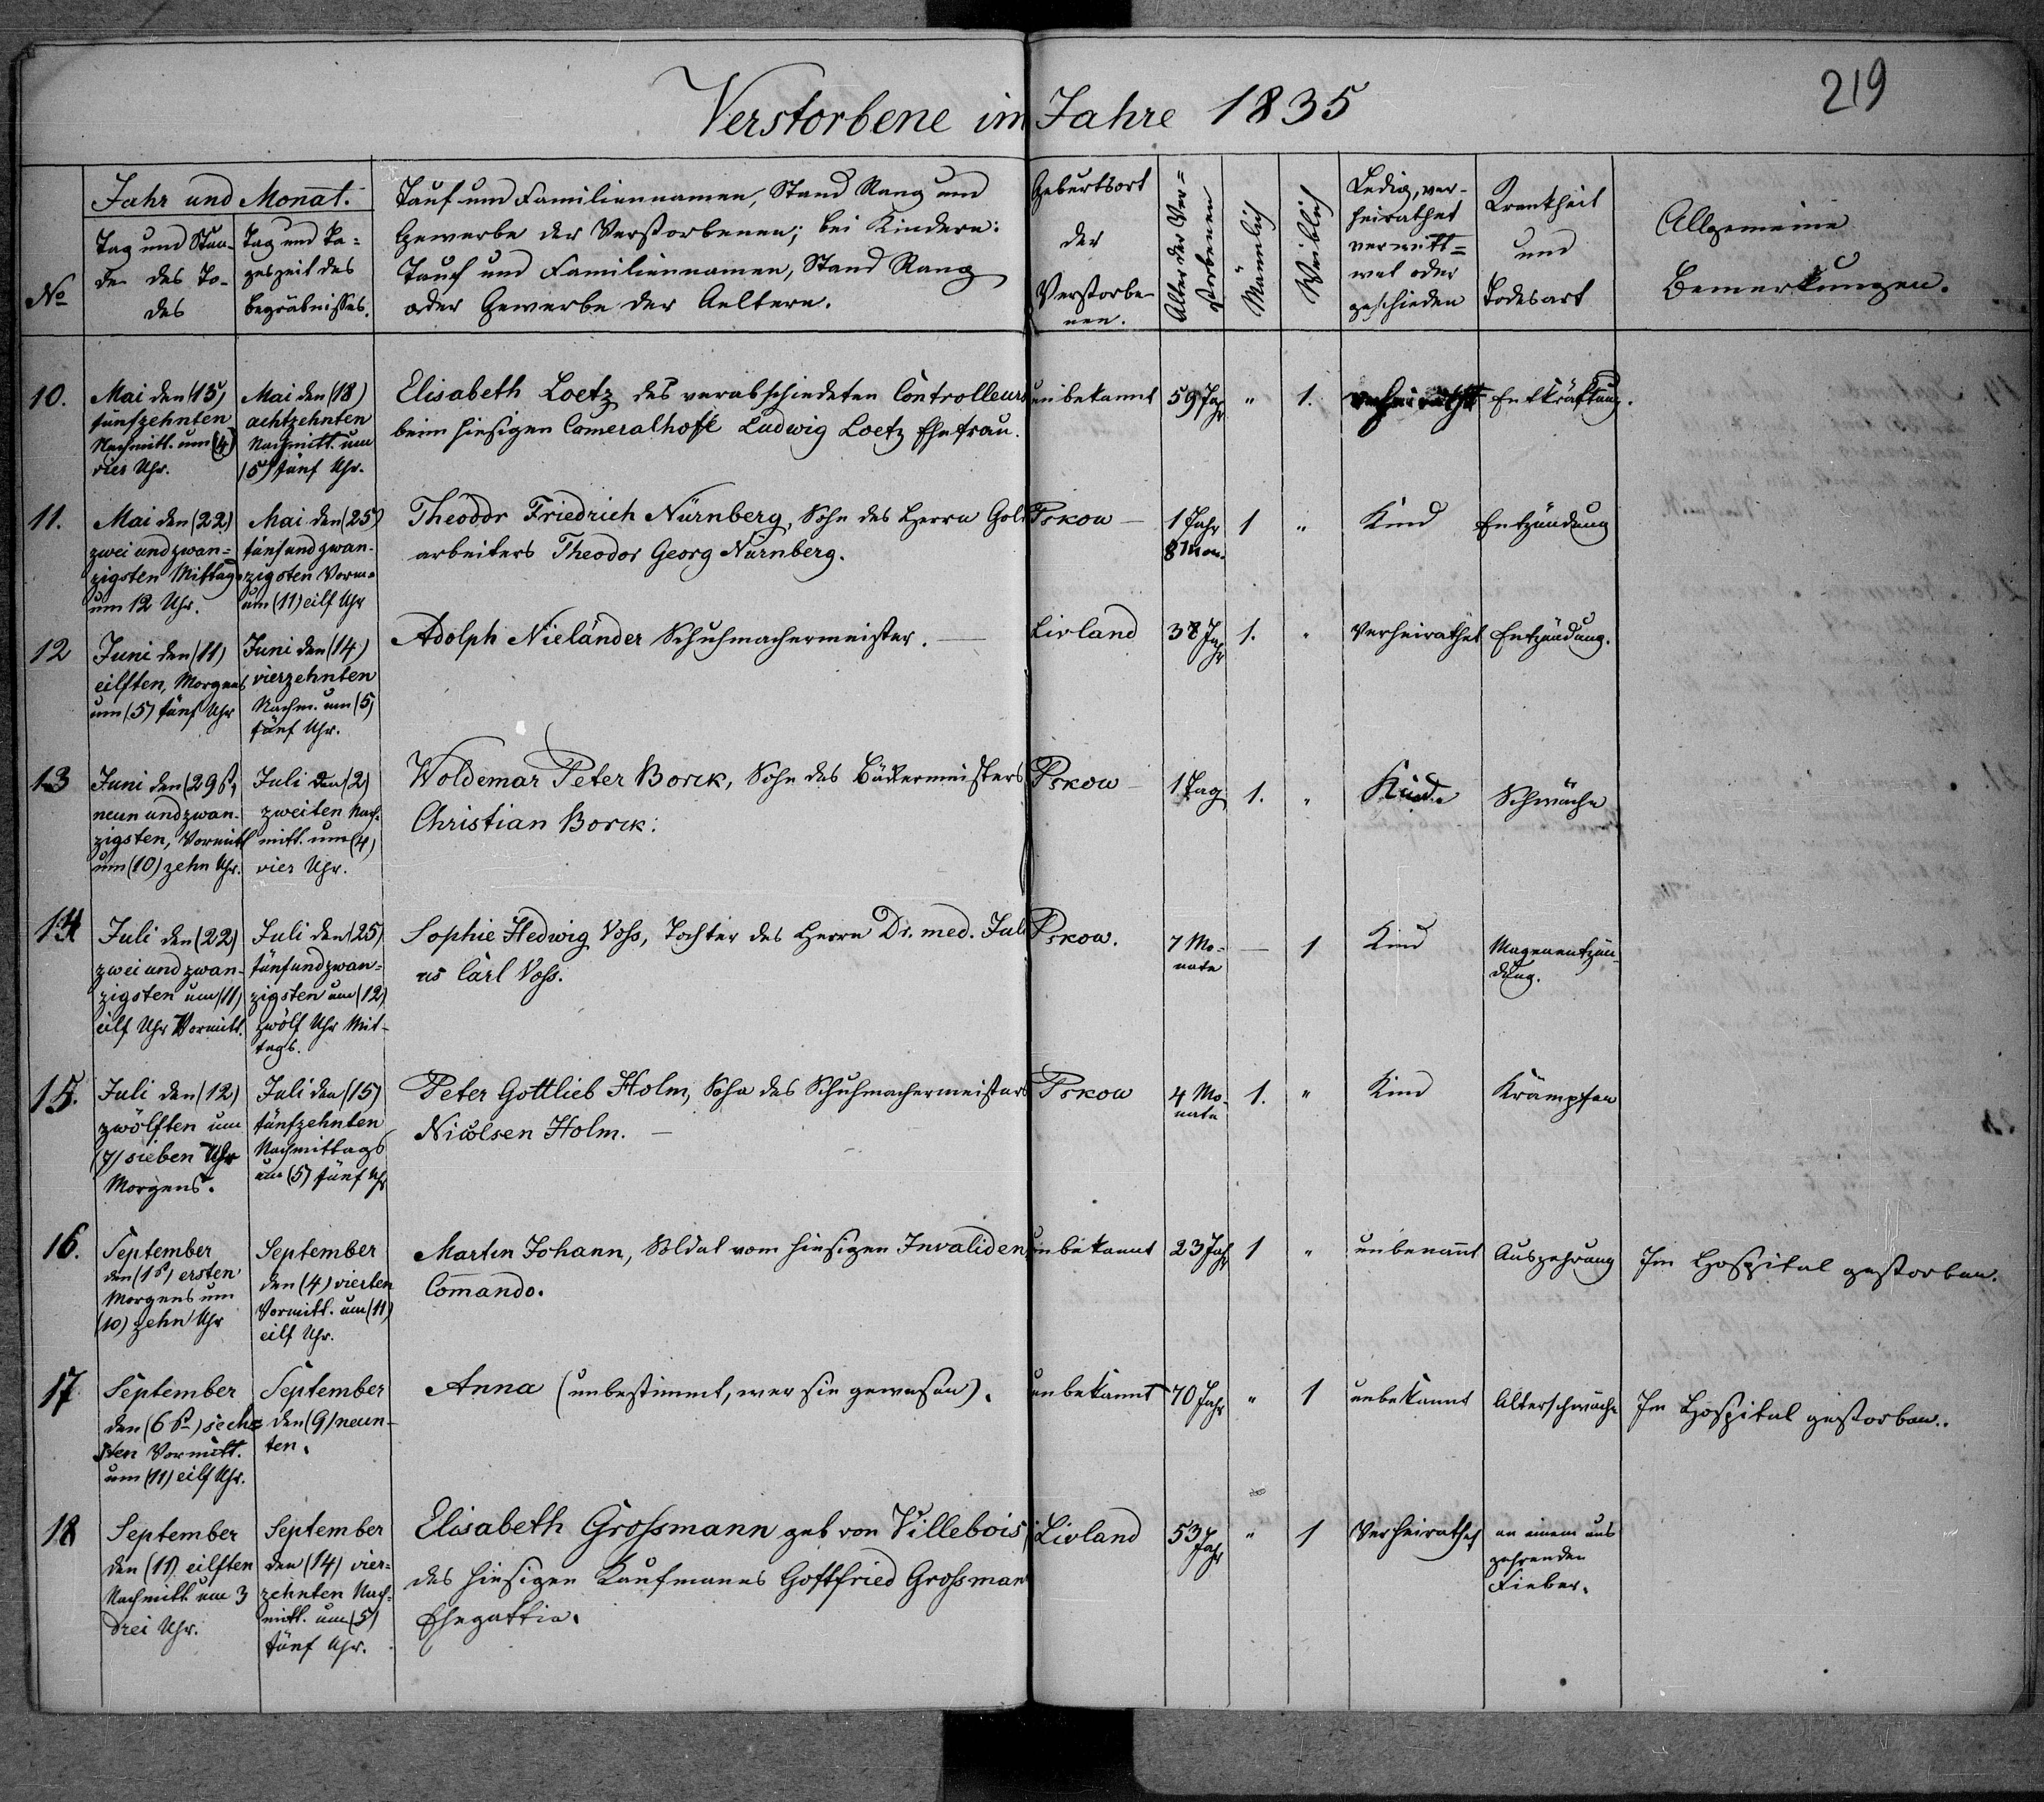 219
Verstorbene im Jahre 1835
No
Jahr und Monat.
Tag und Stun-
de des To-
des
Tag und Ta-
geszeit des
Begräbnisses.
Tauf und Familiennamen, Stand Rang und
Gewerbe der Verstorbenen; bei Kindern:
Tauf und Familiennamen, Stand Rang
oder Gewerbe der Aeltern.
Geburtsort
der
Verstorbe-
nen.
Alter der Ver=
storbenen
Männlich
Weiblich
Ledig, ver-
heirathet
verwitt=
wet oder
geschieden
Krankheit
und
Todesart
Allgemeine
Bemerkungen.
10.
Mai den (15)
funfzehnten
Nachmitt. um (4)
vier Uhr.
Mai den (18)
achtzehnten
Nachmitt. um
(5) fünf Uhr.
Elisabeth Loetz des verabschiedeten Controlleurs
beim hiesigen Cameralhofe Ludwig Loetz Ehefrau.
unbekannt
59 Jahr
"
1.
verheirathet
Entkräftung.
11.
Mai den (22)
zwei und zwan=
zigsten Mittag
um 12 Uhr.
Mai den (25)
fünf und zwan-
zigsten Vorm=
um (11) eilf Uhr
Theodor Friedrich Nürnberg, Sohn des Herrn Gold
arbeiters Theodor Georg Nürnberg.
Pskow —
1 Jahr
8 Mon.
1
"
Kind
Entzündung
12
Juni den (11)
eilften, Morgens
um (5) fünf Uhr
Juni den (14)
vierzehnten
Nachm. um (5)
fünf Uhr.
Adolph Nieländer Schuhmachermeister. —
Livland
38 Jahr
1.
"
Verheirathet
Entzündung.
13
Juni den (29 st)
neun und zwan-
zigsten, Vormitt
um (10) zehn Uhr.
Juli den (2)
zweiten Nach-
mitt. um (4)
vier Uhr.
Woldemar Peter Borck, Sohn des Bäckermeisters
Christian Borck.
Pskow —
1 Tag
1.
"
Kind.
Schwäche
14
Juli den (22)
zwei und zwan-
zigsten um (11)
eilf Uhr Vormitt.
Juli den (25)
fünf und zwan=
zigsten um (12)
zwölf Uhr Mit-
tags.
Sophie Hedwig Voss, Tochter des Herrn Dr. med. Juli
us Carl Voss.
Pskow.
7 Mo-
nate
—
1
Kind
Magenentzün-
dung.
15.
Juli den (12)
zwölften um
(7) sieben Uhr
Morgens.
Juli den (15)
fünfzehnten
Nachmittags
um (5) fünf Uhr
Peter Gottlieb Holm, Sohn des Schuhmachermeisters
Nicolsen Holm. —
Pskow
4 Mo-
nate
1.
"
Kind
Krämpfen
16.
September
den (1 st) ersten
Morgens um
(10) zehn Uhr
September
den (4) vierten
Vormitt. um (11)
eilf Uhr.
Martin Johann, Soldat vom hiesigen Invaliden
Comando.
unbekannt
23 Jahr
1
"
unbekannt
Auszehrung
Im Hospital gestorben.
17
September
den (6 st) sechs
sten Vormitt.
um (11) eilf Uhr.
September
den (9) neun-
ten.
Anna (unbestimmt, wer sie gewesen).
unbekannt
70 Jahr
"
1
unbekannt
Alterschwäche
Im Hospital gestorben..
18
September
den (11) eilften
Nachmitt um 3
drei Uhr.
September
den (14) vier=
zehnten Nach=
mitt. um (5)
fünf Uhr.
Elisabeth Grossmann geb von Villebois,
des hiesigen Kaufmanns Gottfried Grossman
Ehegattin.
Livland
53 Jahr
"
1
Verheirathet
an einem aus
zehrenden
Fieber.